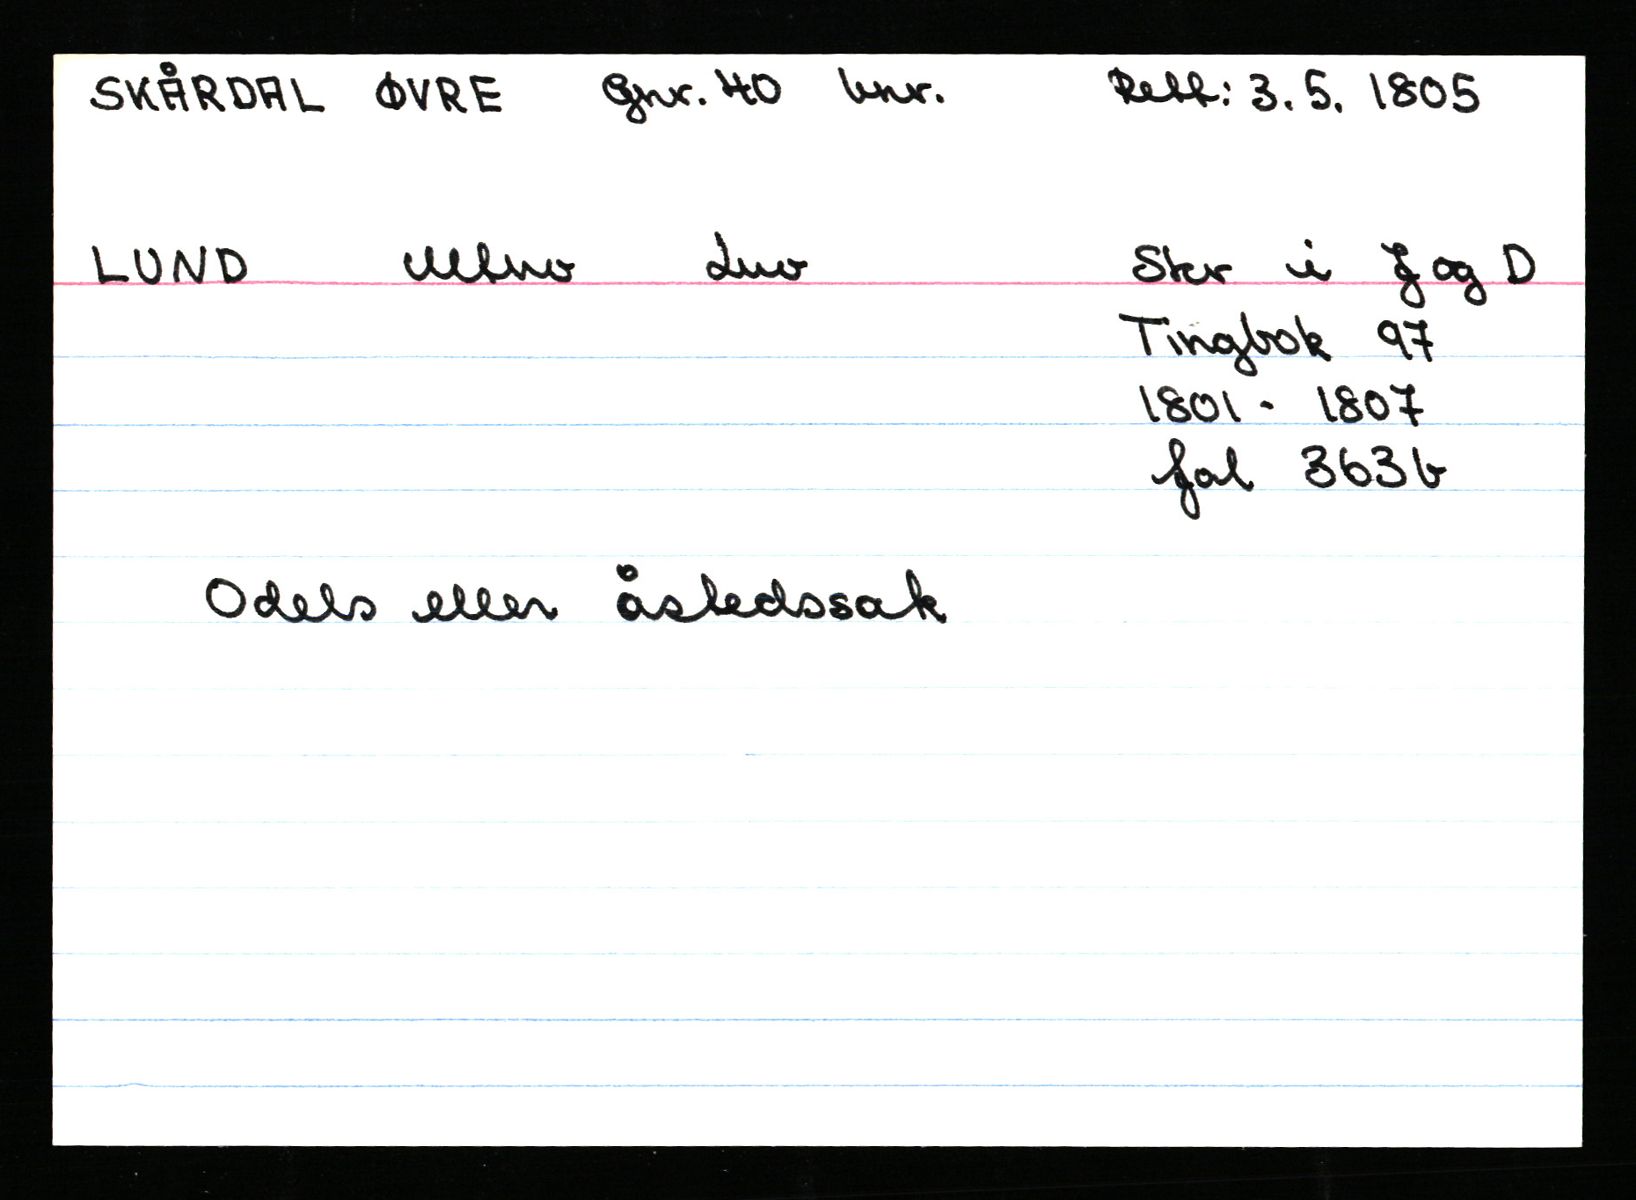 SKÅRDAL ØVRE Gnr. 40 bnr. Rett: 3. 5. 1805
LUND Skr i J og D
Tingbok 97
1801 - 1807
fol 363b
Odels eller åstedssak